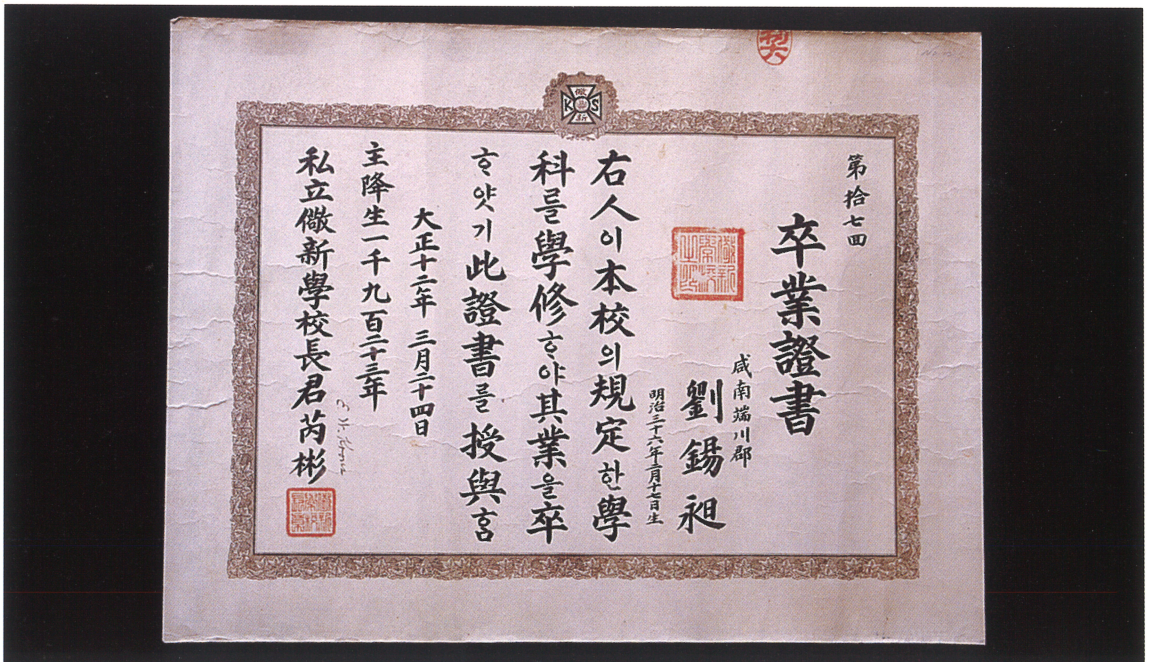 第拾七回
卒業證書
咸南端川郡
劉錫昶
明治三十六年二月十七日生
右人이本校의規定한學
科를學修ᄒᆞ야其業을卒
ᄒᆞ얏기此證書를授與홈
大正十二年 三月二十四日
主降生一千九百二十三年
私立儆新學校長君芮彬
儆
K S
新
儆新學校之印